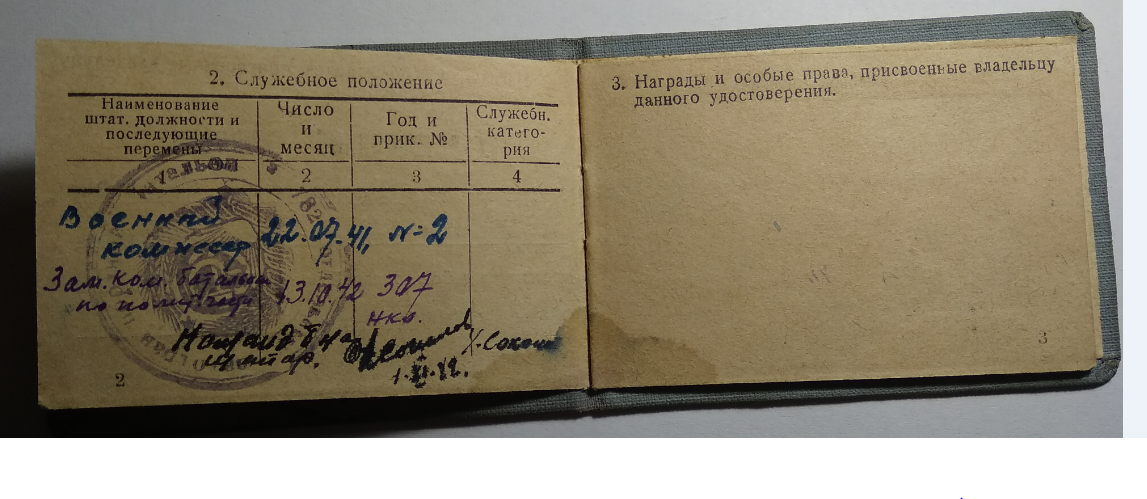 2. Служебное положение
Наименование
штат. должности и
последующие
перемены
Число
и
месяц
Год и
прик. №
Служебн.
катего-
рия
1
2
3
4
Военный
комиссар
22.07.41,
N=2
Зам. ком. батальона
по политчасти
13.10.42
307
нко.
Команд
1.XI.42.
2
3. Награды и особые права, присвоенные владельцу
данного удостоверения.
3